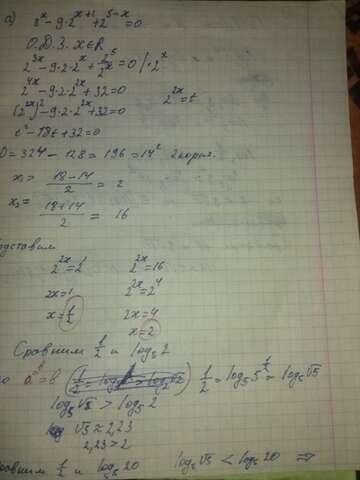 а) 8^x - 9·2^{x+1} + 2^{5-x} = 0
О.Д.З. x∈R
2^{3x} - 9·2·2^x + 2^5/2^x = 0 | ·2^x
2^{4x} - 9·2·2^{2x} + 32 = 0
(2^{2x})^2 - 9·2·2^{2x} + 32 = 0    2^{2x} = t
t^2 - 18t + 32 = 0
D = 324 - 128 = 196 = 14^2 2 корня.
x₁ = (18-14)/2 = 2
x₂ = (18+14)/2 = 16
подставим
2^{2x} = 2^1    2^{2x} = 16
2x = 1    2^{2x} = 2^4
x = 1/2    2x = 4
x = 2
Сравним 1/2 и log₅2
1/2 = log₅5^{1/2} = log₅√5
log₅√5 > log₅2
√5 ≈ 2,23
2,23 > 2
Сравним 1/2 и log₅20    log₅√5 < log₅20 ⇒